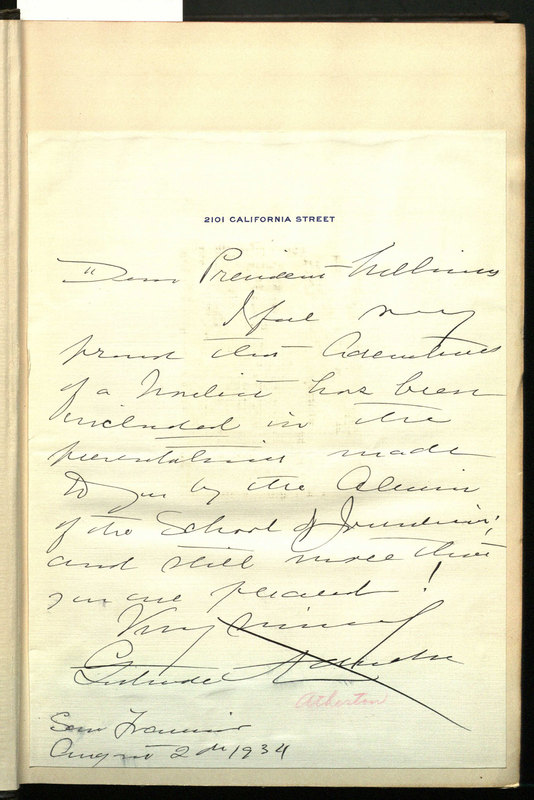 2101 CALIFORNIA STREET
"Dear President Williams
I feel very
proud that Adventures
of a Novelist has been
included in the
presentations made
to you by the Alumni
of the School of Journalism;
and still more that
you are pleased!
Very sincerely
Gertrude Atherton
Atherton
San Francisco
August 2d 1934